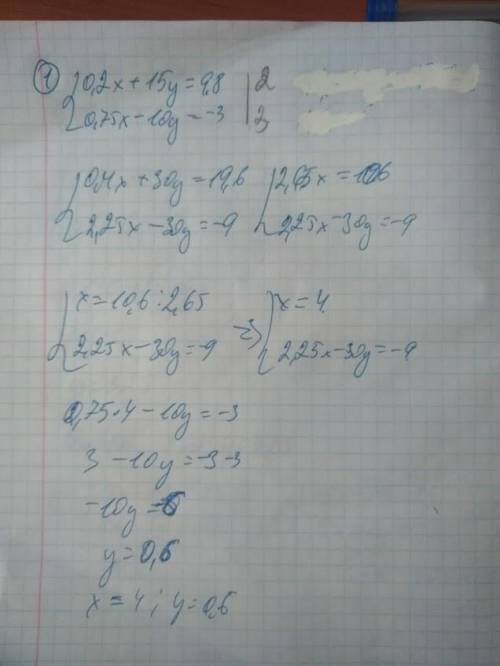 1 { 0,2x + 15y = 9,8 | 2
0,75x - 10y = -3 | 3
{ 0,4x + 30y = 19,6 { 2,65x = 10,6
2,25x - 30y = -9 2,25x - 30y = -9
{ x = 10,6 : 2,65 => { x = 4
2,25x - 30y = -9 2,25x - 30y = -9
0,75 · 4 - 10y = -3
3 - 10y = -3-3
-10y = -6
y = 0,6
x = 4 ; y = 0,6